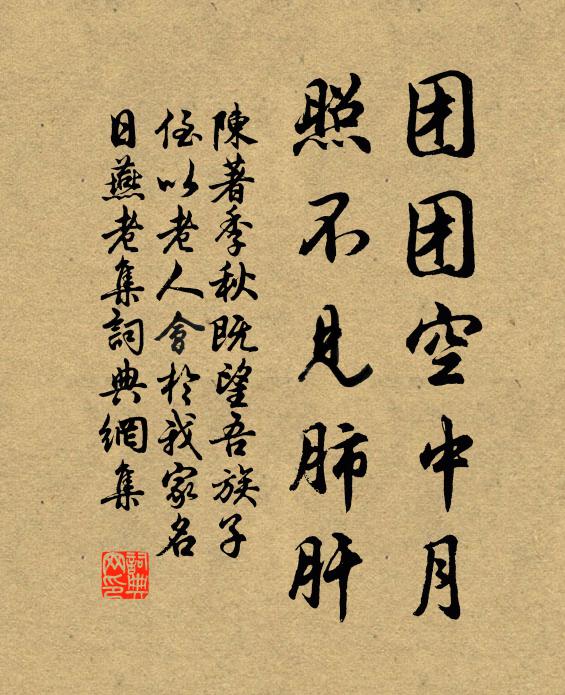 团团空中月
照不見肺肝
陳著季秋既望吾族子
侄以老人會於我家名
日燕老集詞典網集
詞典網印